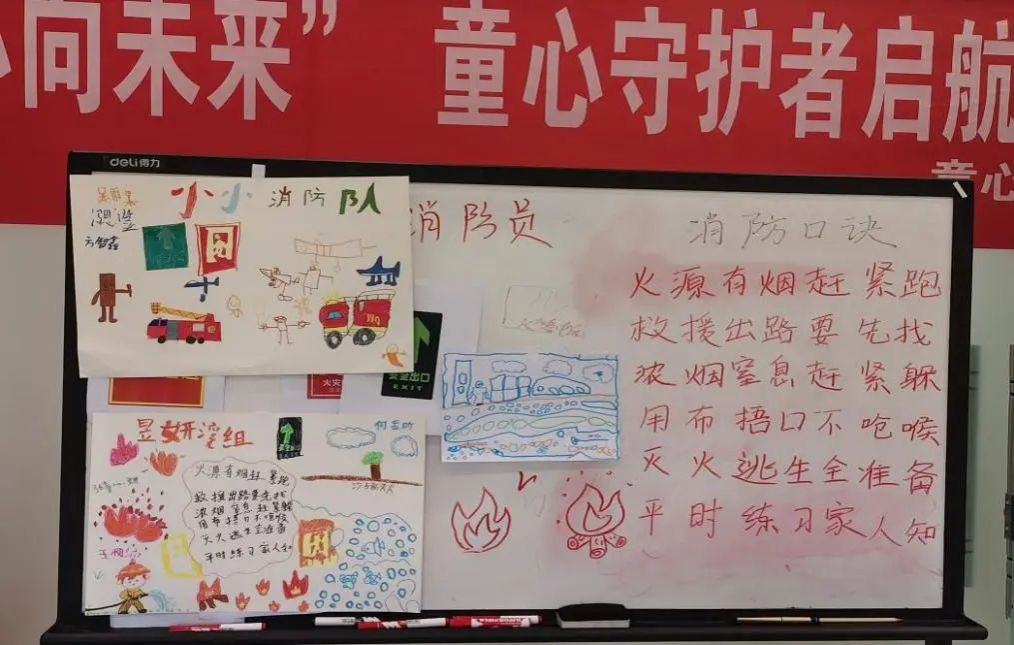 向未来” 童心守护者启航
童心
deli 得力
小小消防队
消防员
消防口诀
火源有烟赶紧跑
救援出路要先找
浓烟窒息赶紧躲
用布捂口不呛喉
灭火逃生全准备
平时练习家人知
安全出口
EXIT
火灾
组
火源有烟赶紧跑
救援出路要先找
浓烟窒息赶紧躲
用布捂口不呛喉
灭火逃生全准备
平时练习家人知